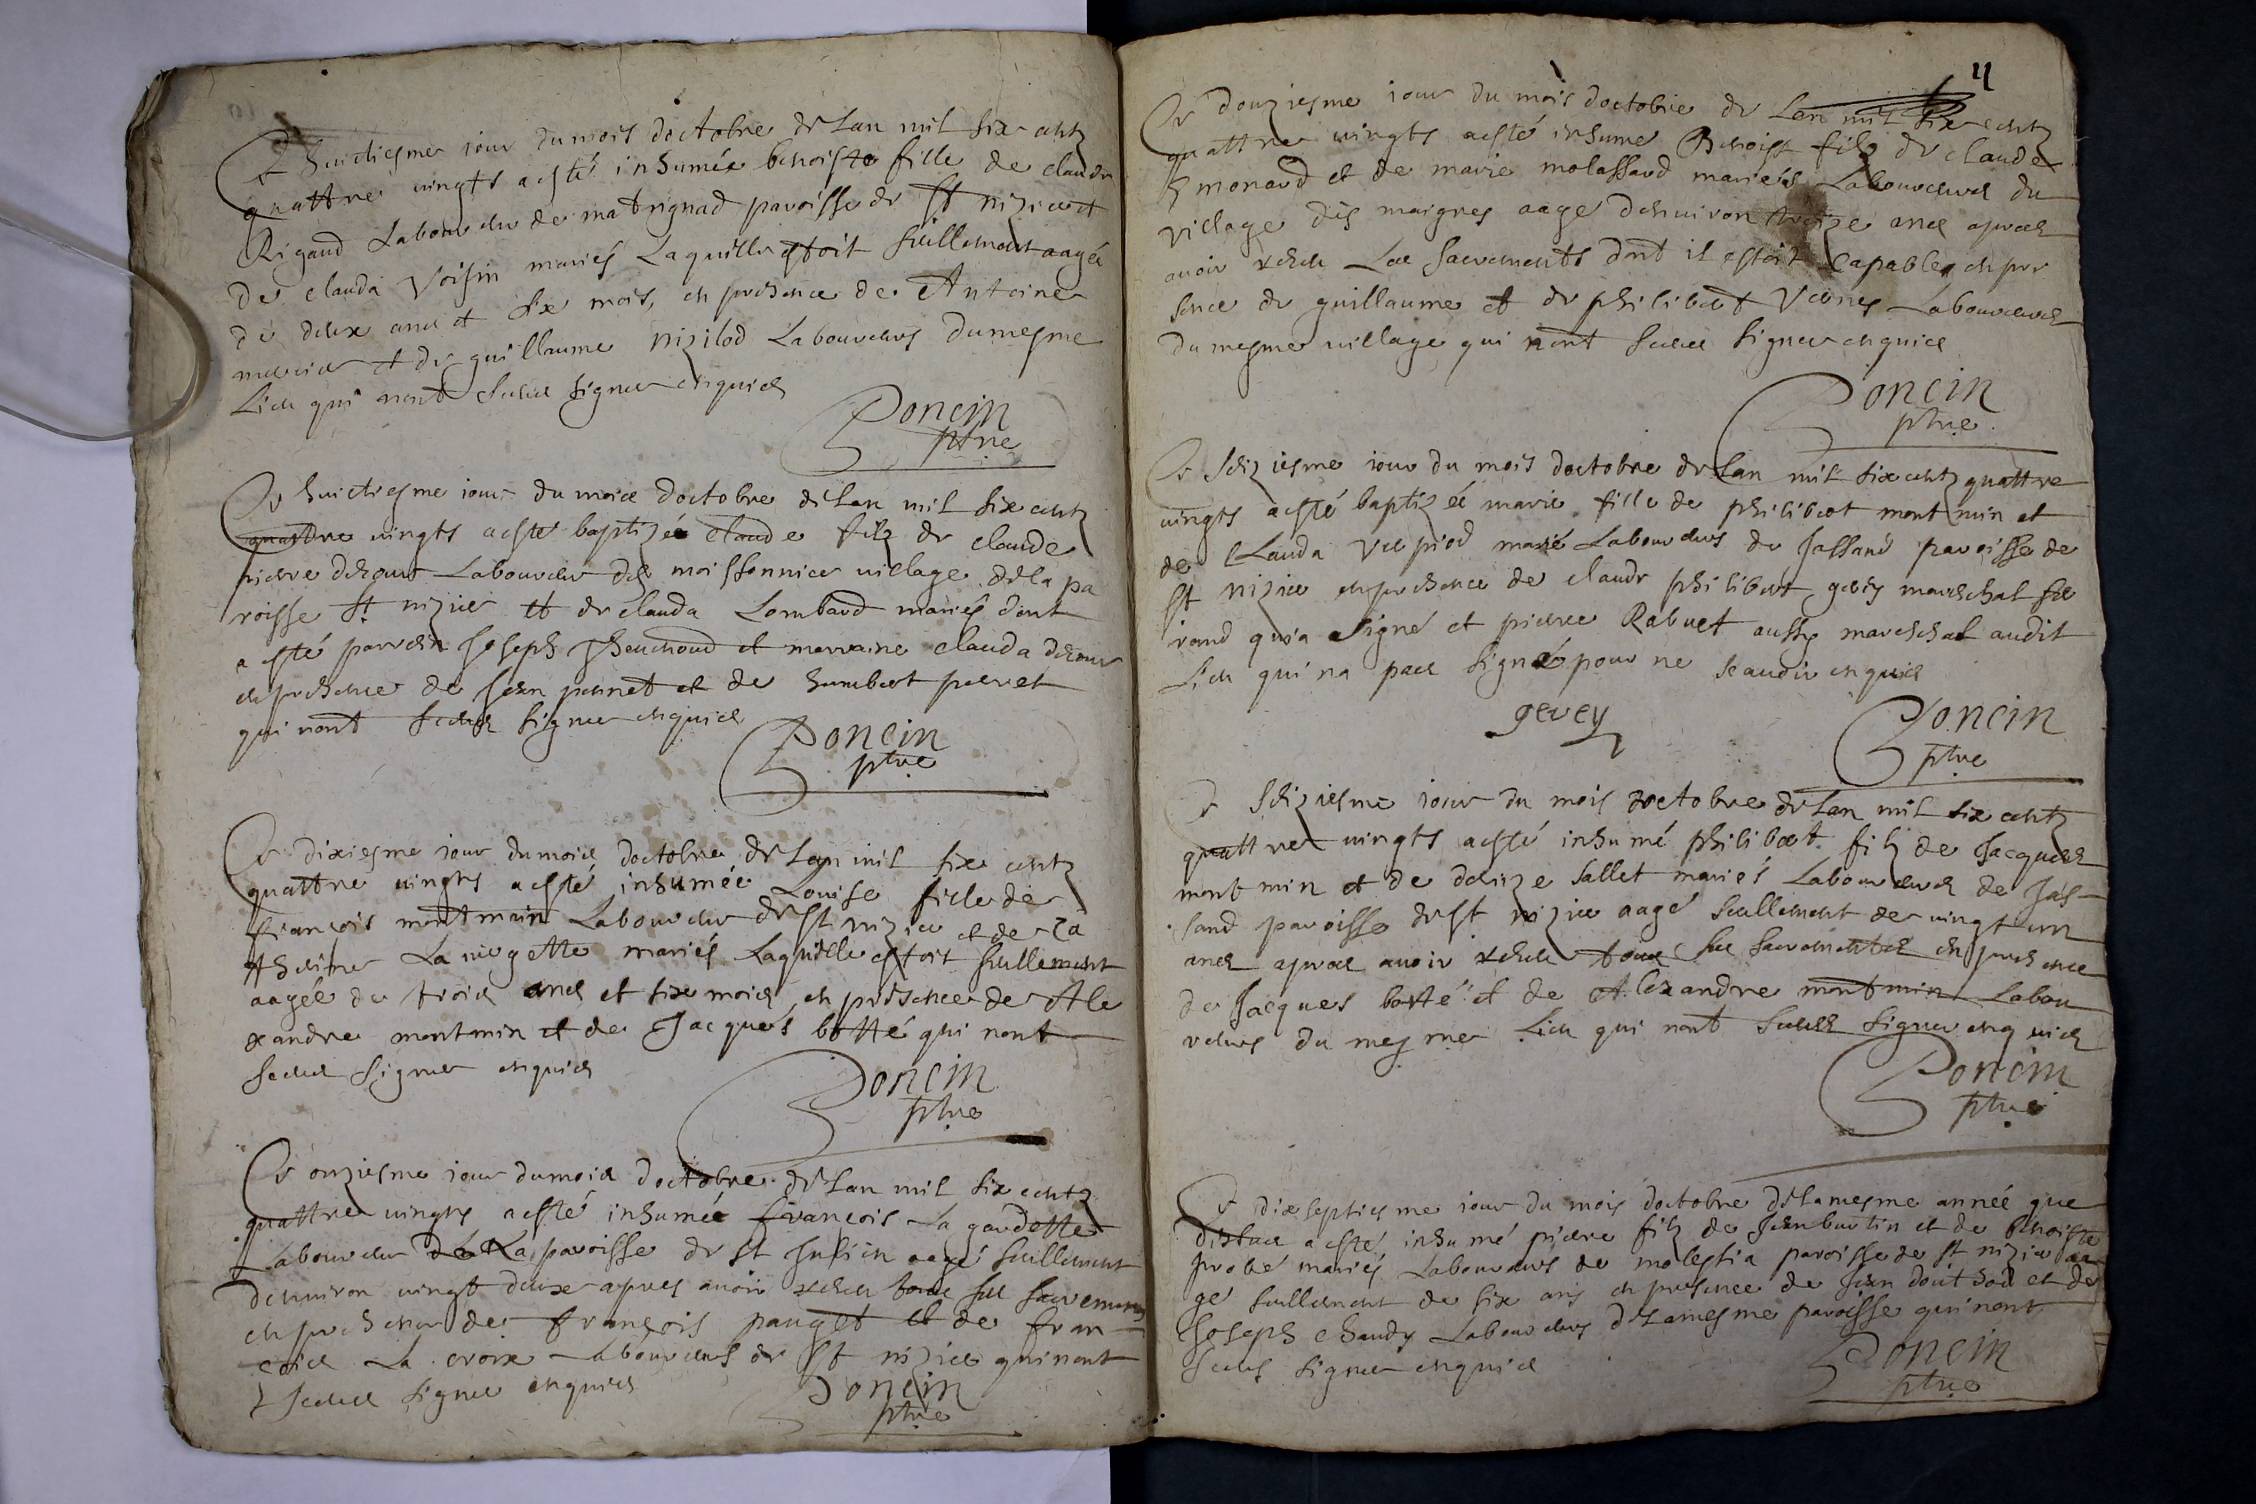 Le huictiesme iour du mois doctobre de Lan mil six centz
quattre vingts a esté inhumée benoiste fille de claude
Rigaud Laboureur de matrignad paroisse de St nizier et
de clauda Voisin mariés Laquelle estoit seullement aagée
de deux ans et six mois, en presence de Antoine
mercier et de guillaume nizilod Laboureurs du mesme
Lieu qui nont sceus signer enquis
Poncin
ptre
Le huictiesme iour du mois doctobre de Lan mil six centz
quattre vingts a esté baptizée claude filz de claude
pierre Laboureur des moissonnier village de la pa
roisse St nizier et de clauda Lombard mariés dont
a esté parrein Joseph et marraine clauda
en presence de Jean ponnet et de humbert perret
qui nont sceus signer enquis
Poncin
ptre
Le dixiesme iour du mois doctobre de Lan mil six centz
quattre vingts a esté inhumée Louise fille de
François montmain Laboureur de St nizier et de ca
therine La vergette mariés Laquelle estoit seullement
aagée de trois ans et six mois, en presence de Ale
xandre montmin et de Jacques botté qui nont
sceus signer enquis
Poncin
ptre
Le onziesme iour du mois doctobre de Lan mil six centz
quattre vingts a esté inhumée François La gaudotte
Laboureur de La paroisse de st Julien aagé seullement
denviron vingt deux apres avoir receu tous ses sacremens
en presence de françois pauget et de fran
cois La croix Laboureurs de St nizier qui nont
sceus signer enquis
Poncin
ptre
11
Le douziesme iour du mois doctobre de Lan mil six centz
quattre vingts a esté inhume Benoist filz de claude
monard et de marie molassard mariés Laboureurs du
village des maignes aage denviron treize ans apres
avoir receu Les sacrements dont il estoit capable en pre
sence de guillaume et de philibert Vernes Laboureurs
du mesme village qui nont sceus signer enquis
Poncin
ptre
Le seiziesme iour du mois doctobre de Lan mil six centz quattre
vingts a esté baptizée marie fille de philibert montmin et
de Clauda Verpiod marié Laboureurs de Jassand paroisse de
St nizier en presence de claude philibert gevey mareschal
rand qui a signé et pierre Rabuet aussy mareschal audit
Lieu qui na pas signé pour ne scavoir enquis
gevey
Poncin
ptre
Le seiziesme iour du mois doctobre de Lan mil six centz
quattre vingts a esté inhumé philibert filz de Jacques
montmin et de denize sallet mariés Laboureurs de Jas-
sand paroisse de St nizier aagé seullement de vingt un
ans apres avoir receu tous ses sacrements en presence
de Jacques botté et de Alexandre montmin Labou
reurs du mesme Lieu qui nont sceus signer enquis
Poncin
ptre
Le dixseptiesme iour du mois doctobre de la mesme année que
dessus a esté inhumé pierre filz de Jean burtin et de benoiste
probé mariés Laboureurs de molestia paroisse de St nizier aa
gé seullement de six ans en presence de Jean douthod et de
Joseph chaudy Laboureurs de La mesme paroisse qui nont
sceus signer enquis
Poncin
ptre